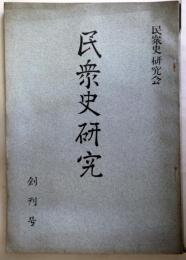 民衆史研究会
民衆史研究
創刊号